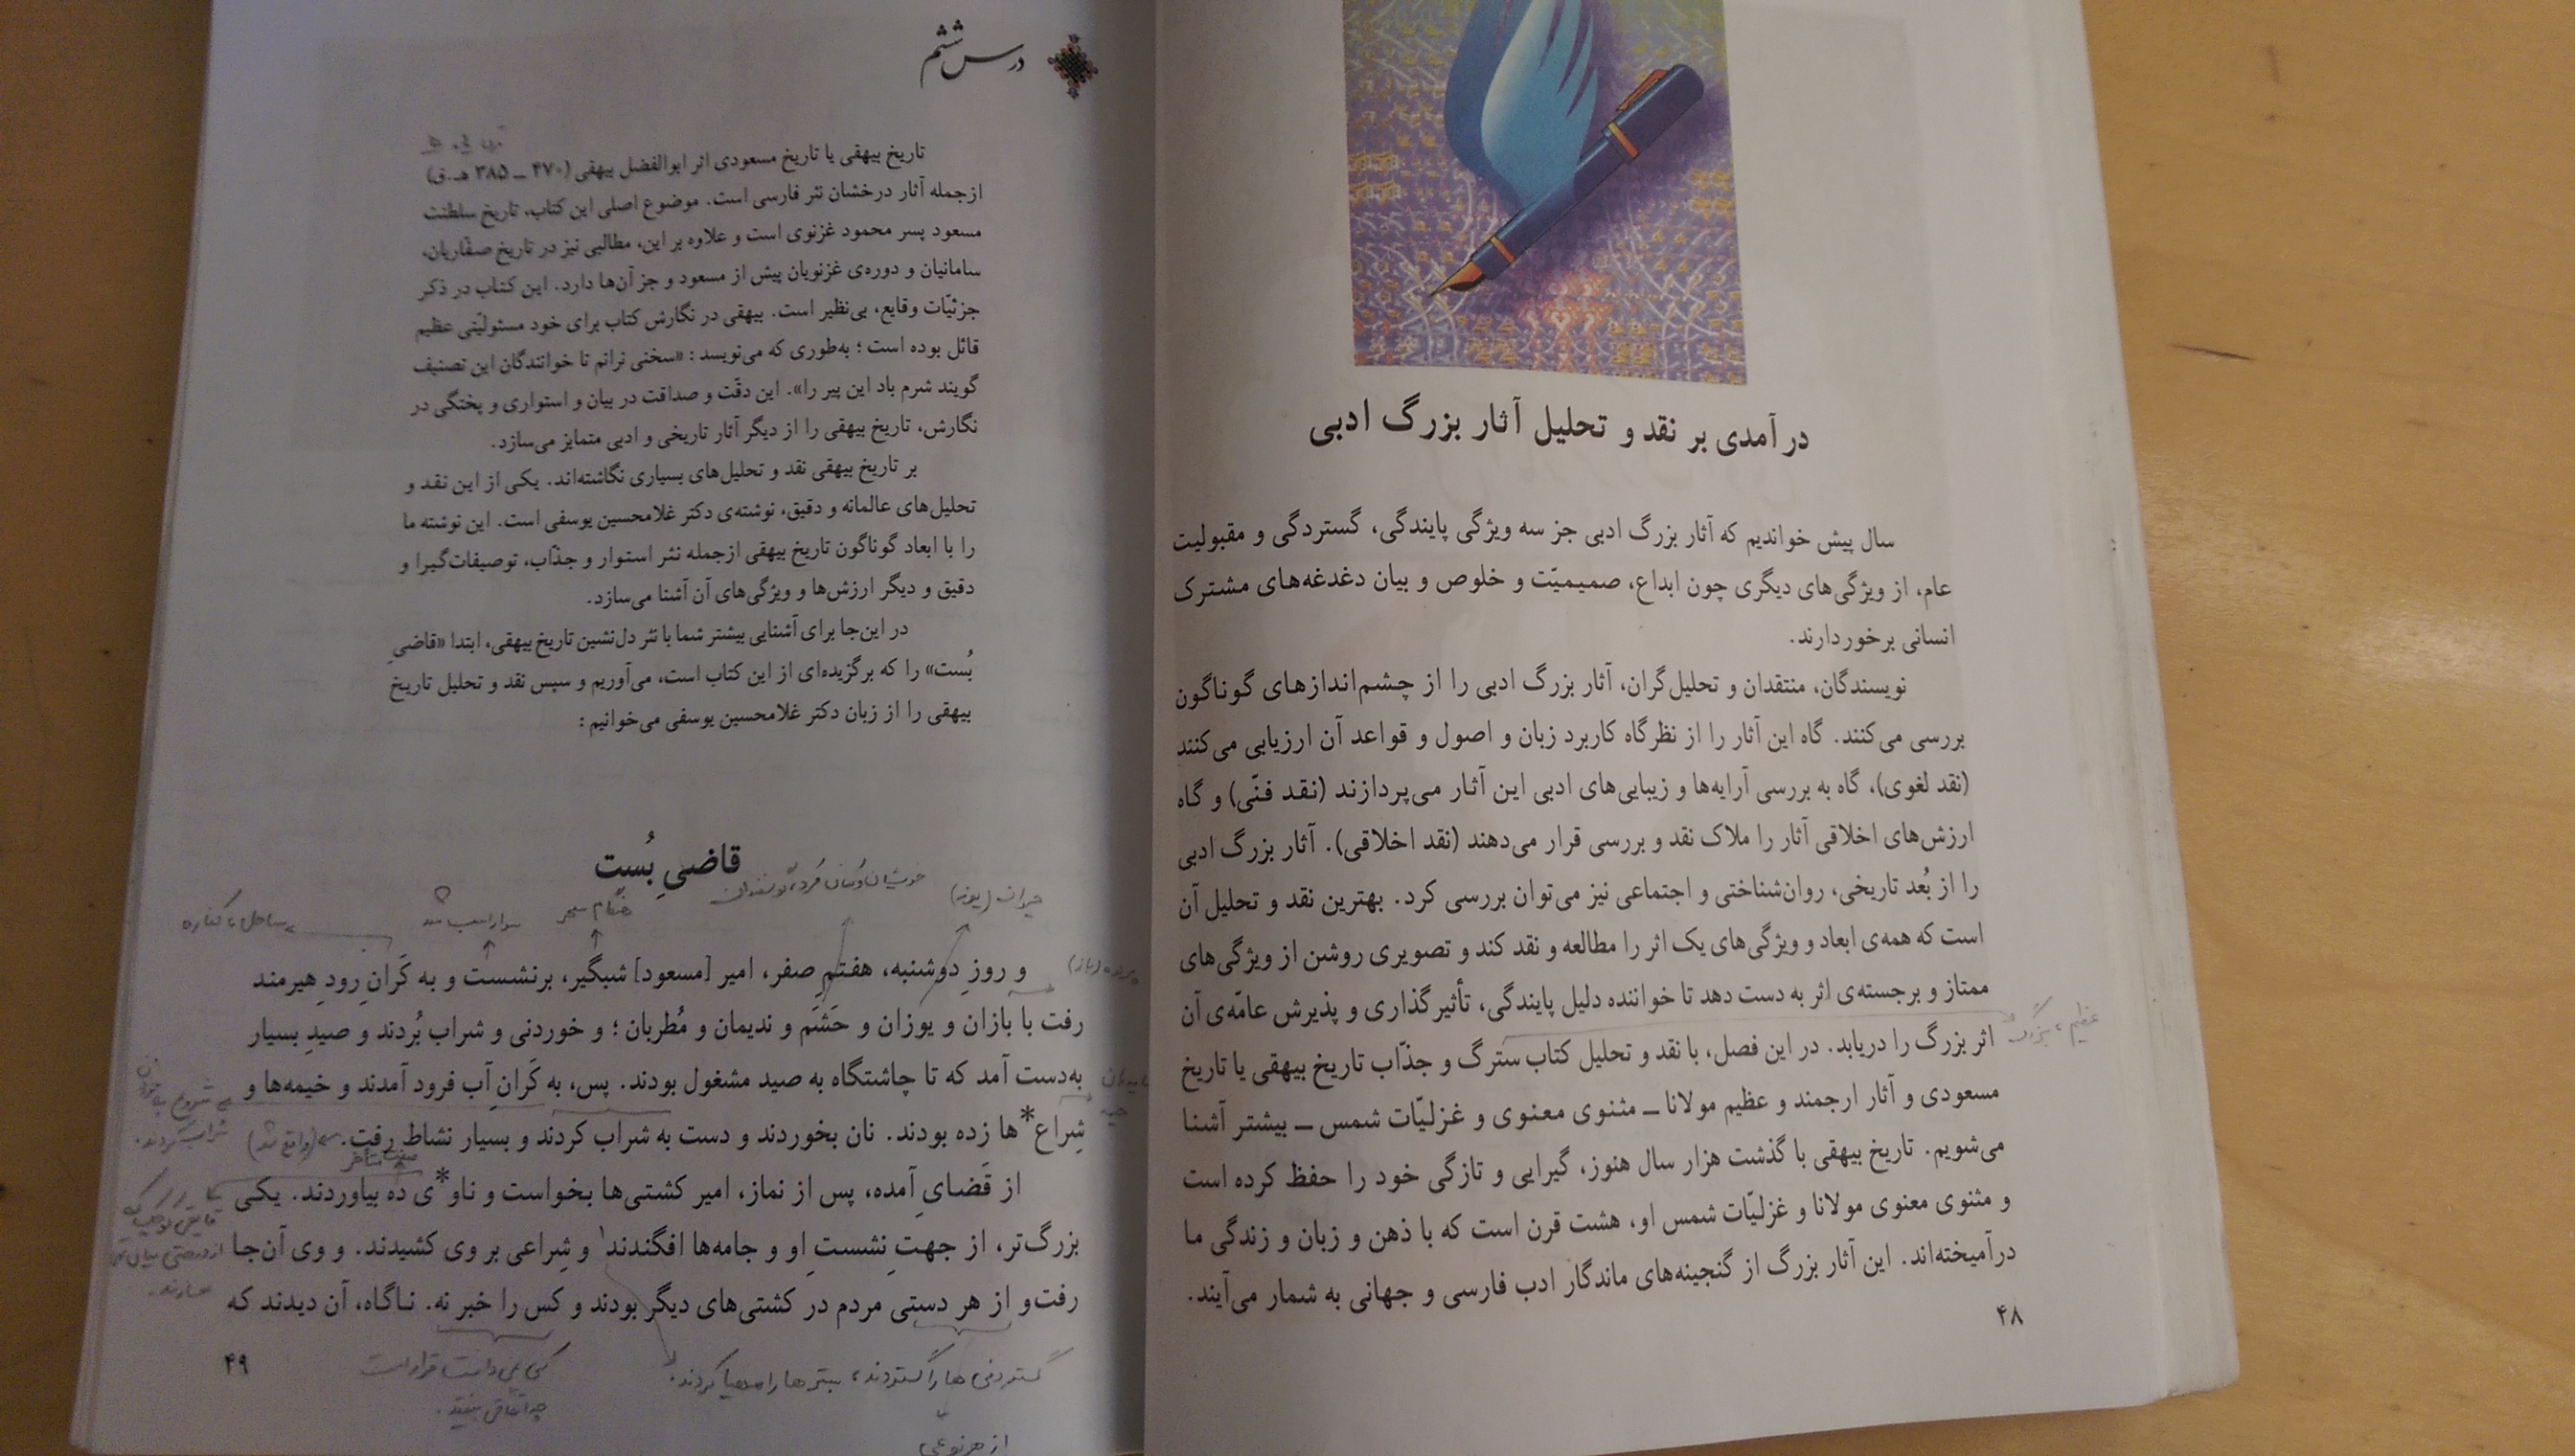 درآمدی بر نقد و تحلیل آثار بزرگ ادبی
سال پیش خواندیم که آثار بزرگ ادبی جز سه ویژگی پایندگی، گستردگی و مقبولیت
عام، از ویژگی‌های دیگری چون ابداع، صمیمیّت و خلوص و بیان دغدغه‌های مشترک
انسانی برخوردارند.
نویسندگان، منتقدان و تحلیل‌گران، آثار بزرگ ادبی را از چشم‌اندازهای گوناگون
بررسی می‌کنند. گاه این آثار را از نظرگاه کاربرد زبان و اصول و قواعد آن ارزیابی می‌کنند
(نقد لغوی)، گاه به بررسی آرایه‌ها و زیبایی‌های ادبی این آثار می‌پردازند (نقد فنّی) و گاه
ارزش‌های اخلاقی آثار را ملاک نقد و بررسی قرار می‌دهند (نقد اخلاقی). آثار بزرگ ادبی
را از بُعد تاریخی، روان‌شناختی و اجتماعی نیز می‌توان بررسی کرد. بهترین نقد و تحلیل آن
است که همه‌ی ابعاد و ویژگی‌های یک اثر را مطالعه و نقد کند و تصویری روشن از ویژگی‌های
ممتاز و برجسته‌ی اثر به دست دهد تا خواننده دلیل پایندگی، تأثیرگذاری و پذیرش عامّه‌ی آن
اثر بزرگ را دریابد. در این فصل، با نقد و تحلیل کتاب سترگ و جذّاب تاریخ بیهقی یا تاریخ
عظیم، بزرگ
مسعودی و آثار ارجمند و عظیم مولانا ــ مثنوی معنوی و غزلیّات شمس ــ بیشتر آشنا
می‌شویم. تاریخ بیهقی با گذشت هزار سال هنوز، گیرایی و تازگی خود را حفظ کرده است
و مثنوی معنوی مولانا و غزلیّات شمس او، هشت قرن است که با ذهن و زبان و زندگی ما
درآمیخته‌اند. این آثار بزرگ از گنجینه‌های ماندگار ادب فارسی و جهانی به شمار می‌آیند.
۴۸
درس ششم
تاریخ بیهقی یا تاریخ مسعودی اثر ابوالفضل بیهقی (۴۷۰ ــ ۳۸۵ هـ.ق)
ازجمله آثار درخشان نثر فارسی است. موضوع اصلی این کتاب، تاریخ سلطنت
مسعود پسر محمود غزنوی است و علاوه بر این، مطالبی نیز در تاریخ صفّاریان،
سامانیان و دوره‌ی غزنویان پیش از مسعود و جز آن‌ها دارد. این کتاب در ذکر
جزئیّات وقایع، بی‌نظیر است. بیهقی در نگارش کتاب برای خود مسئولیّتی عظیم
قائل بوده است؛ به‌طوری که می‌نویسد: «سخنی نرانم تا خوانندگان این تصنیف
گویند شرم باد این پیر را». این دقّت و صداقت در بیان و استواری و پختگی در
نگارش، تاریخ بیهقی را از دیگر آثار تاریخی و ادبی متمایز می‌سازد.
بر تاریخ بیهقی نقد و تحلیل‌های بسیاری نگاشته‌اند. یکی از این نقد و
تحلیل‌های عالمانه و دقیق، نوشته‌ی دکتر غلامحسین یوسفی است. این نوشته ما
را با ابعاد گوناگون تاریخ بیهقی ازجمله نثر استوار و جذّاب، توصیفات‌گیرا و
دقیق و دیگر ارزش‌ها و ویژگی‌های آن آشنا می‌سازد.
در این‌جا برای آشنایی بیشتر شما با نثر دل‌نشین تاریخ بیهقی، ابتدا «قاضیِ
بُست» را که برگزیده‌ای از این کتاب است، می‌آوریم و سپس نقد و تحلیل تاریخ
بیهقی را از زبان دکتر غلامحسین یوسفی می‌خوانیم:
قاضیِ بُست
هنگام سحر
سوار اسب شد
ساحل، کناره
و روزِ دوشنبه، هفتمِ صفر، امیر [مسعود] شبگیر، برنشست و به کَرانِ رودِ هیرمند
رفت با بازان و یوزان و حَشَم و ندیمان و مُطربان؛ و خوردنی و شراب بُردند و صیدِ بسیار
به‌دست آمد که تا چاشتگاه به صید مشغول بودند. پس، به کَرانِ آب فرود آمدند و خیمه‌ها و
شِراع*ها زده بودند. نان بخوردند و دست به شراب کردند و بسیار نشاط رفت.
(واقع شد)
از قَضایِ آمده، پس از نماز، امیر کشتی‌ها بخواست و ناو*ی ده بیاوردند. یکی
بزرگ‌تر، از جهتِ نشستِ او و جامه‌ها افگندند۱ و شِراعی بر وی کشیدند. و وی آن‌جا
رفت‌و از هر دستی مردم در کشتی‌های دیگر بودند و کس را خبر نه. ناگاه، آن دیدند که
گستردنی ها را گستردند، بسترها را مهیا کردند.
کسی نمی دانست قرار است
چه اتفاقی بیفتد.
از هر نوعی
۴۹